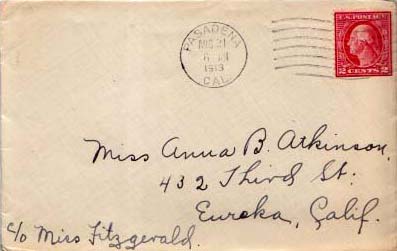 PASADENA
1913
CAL.
U.S. POSTAGE
2 CENTS 2
Miss Anna B. Atkinson,
432 Third St.
Eureka, Calif.
c/o Miss Fitzgerald.